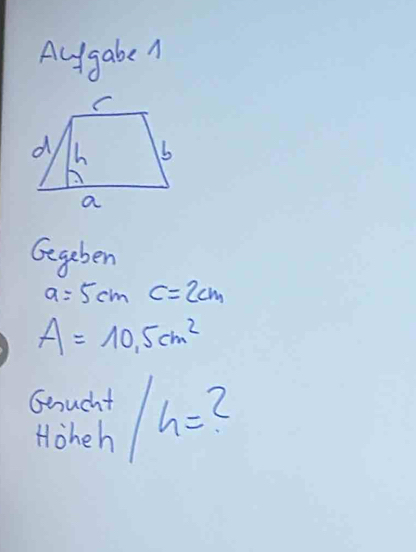 Aufgabe 1
c
d h b
a
Gegeben
a = 5cm c = 2cm
A = 10,5cm²
Gesucht
Höhe h / h = ?